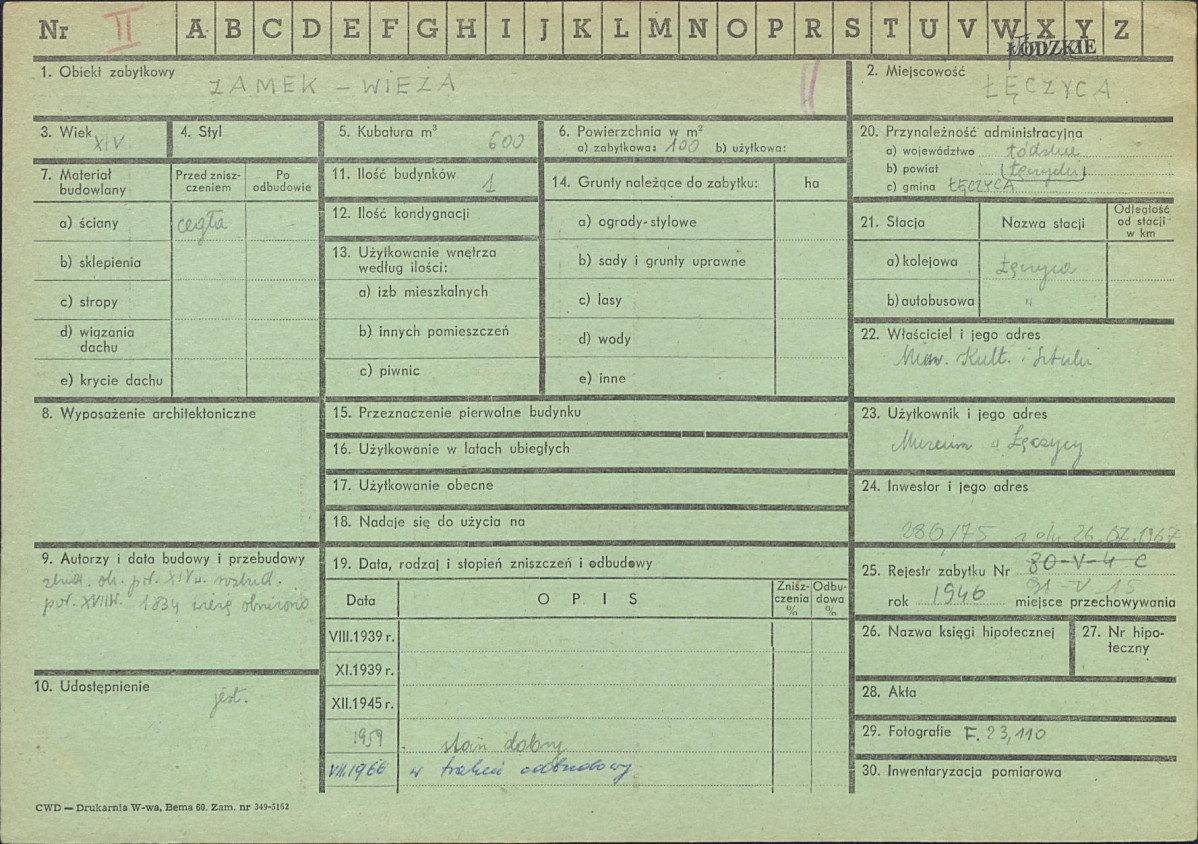 Nr II A B C D E F G H I J K L M N O P R S T U V W X Y Z
ŁÓDZKIE
1. Obiekt zabytkowy
ZAMEK – WIEŻA
2. Miejscowość
ŁĘCZYCA
3. Wiek XIV
4. Styl
5. Kubatura m³ 600
6. Powierzchnia w m²
a) zabytkowa: 100 b) użytkowa:
7. Materiał budowlany
Przed znisz-
czeniem
Po
odbudowie
a) ściany cegła
b) sklepienia
c) stropy
d) wiązania
dachu
e) krycie dachu
8. Wyposażenie architektoniczne
9. Autorzy i data budowy i przebudowy
zbud. ok. poł. XIV w. rozbud.
poł. XVIII w. 1834 wieżę obniżono
10. Udostępnienie
jest.
11. Ilość budynków 1
12. Ilość kondygnacji
13. Użytkowanie wnętrza
według ilości:
a) izb mieszkalnych
b) innych pomieszczeń
c) piwnic
14. Grunty należące do zabytku: ha
a) ogrody-stylowe
b) sady i grunty uprawne
c) lasy
d) wody
e) inne
15. Przeznaczenie pierwotne budynku
16. Użytkowanie w latach ubiegłych
17. Użytkowanie obecne
18. Nadaje się do użycia na
19. Data, rodzaj i stopień zniszczeń i odbudowy
Data OPIS Znisz-
czenia
% Odbu-
dowa
%
VIII.1939 r.
XI.1939 r.
XII.1945 r.
1959 stan dobry
VII.1966 w trakcie odbudowy
20. Przynależność administracyjna
a) województwo łódzkie
b) powiat łęczycki
c) gmina ŁĘCZYCA
21. Stacja Nazwa stacji Odległość
od stacji
w km
a) kolejowa Łęczyca
b) autobusowa "
22. Właściciel i jego adres
Min. Kult. i Sztuki
23. Użytkownik i jego adres
Muzeum w Łęczycy
24. Inwestor i jego adres
280/75 z dn. 26.07.1967
25. Rejestr zabytku Nr 80-V-4 C
91-V 15
rok 1946 miejsce przechowywania
26. Nazwa księgi hipotecznej
27. Nr hipo-
teczny
28. Akta
29. Fotografie F. 23,110
30. Inwentaryzacja pomiarowa
CWD — Drukarnia W-wa, Bema 60. Zam. nr 349-5162